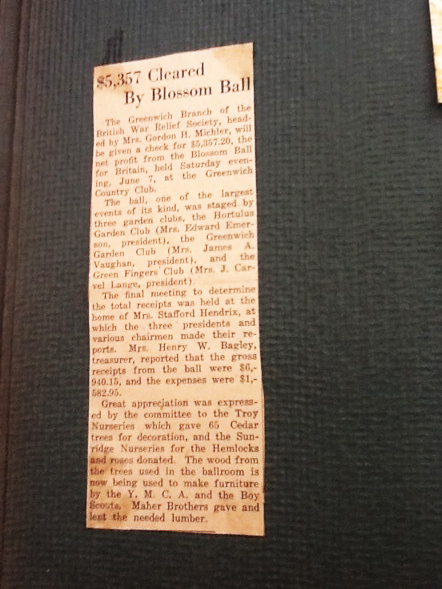 $5,357 Cleared
By Blossom Ball
The Greenwich Branch of the
British War Relief Society, head-
ed by Mrs. Gordon H. Michler, will
be given a check for $5,357.20, the
net profit from the Blossom Ball
for Britain, held Saturday even-
ing, June 7, at the Greenwich
Country Club.
The ball, one of the largest
events of its kind, was staged by
three garden clubs, the Hortulus
Garden Club (Mrs. Edward Emer-
son, president), the Greenwich
Garden Club (Mrs. James A.
Vaughan, president), and the
Green Fingers Club (Mrs. J. Car-
vel Lange, president).
The final meeting to determine
the total receipts was held at the
home of Mrs. Stafford Hendrix, at
which the three presidents and
various chairmen made their re-
ports. Mrs. Henry W. Bagley,
treasurer, reported that the gross
receipts from the ball were $6,-
940.15, and the expenses were $1,-
582.95.
Great appreciation was express-
ed by the committee to the Troy
Nurseries which gave 65 Cedar
trees for decoration, and the Sun-
ridge Nurseries for the Hemlocks
and roses donated. The wood from
the trees used in the ballroom is
now being used to make furniture
by the Y. M. C. A. and the Boy
Scouts. Maher Brothers gave and
lent the needed lumber.